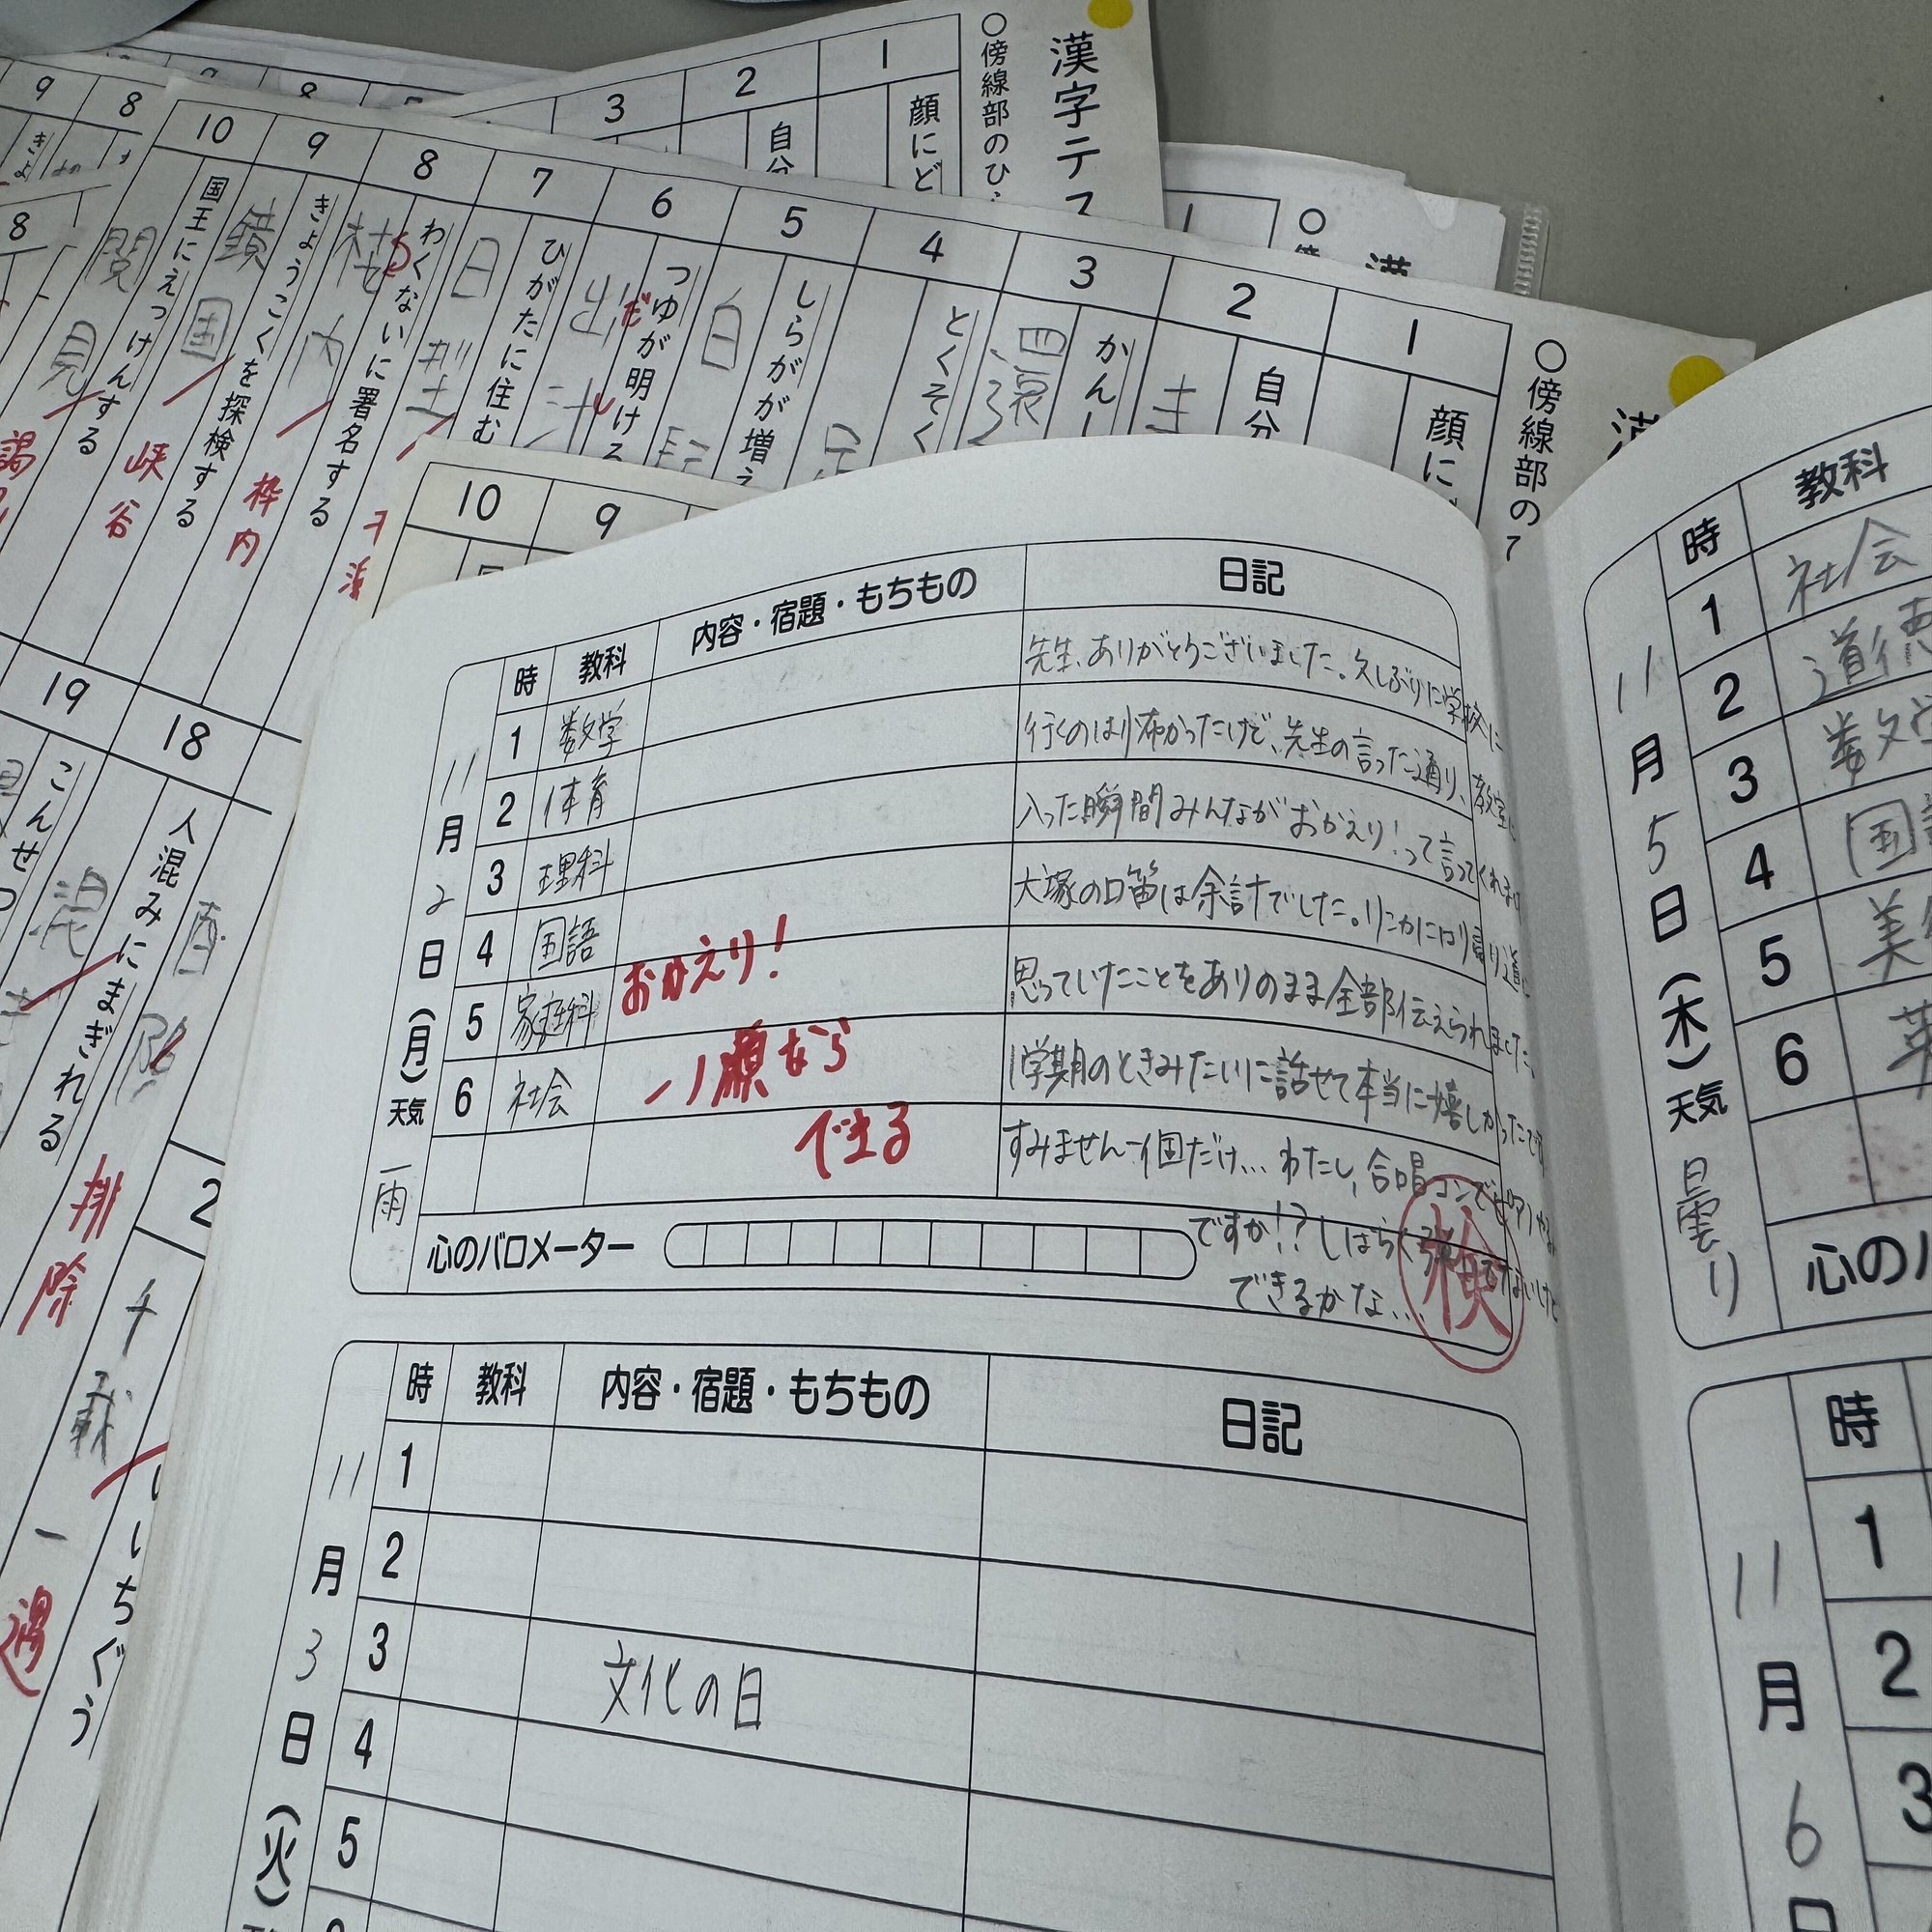 漢字テス
○傍線部のひ
1
2
3
顔にど
自分
9
8
○傍線部の
1
2
3
4
5
6
7
8
9
10
顔に
自分
かん
とくそく
しらがが増え
白
つゆが明ける
ひがたに住む
わくないに署名する
枠内
きょうこくを探検する
国
峡谷
国王にえっけんする
見
10
9
19
18
人混みにまぎれる
混
こんせつ
排除
千
一遇
いちぐう
2
11月2日(月)天気 雨
時 教科 内容・宿題・もちもの 日記
1 数学
2 体育
3 理科
4 国語
5 家庭科
6 社会
おかえり!
川原なら
できる
先生、ありがとうございました。久しぶりに学校に
行くのは怖かったけど、先生の言った通り、教室に
入った瞬間みんなが おかえり!って言ってくれました
大塚の口笛は余計でした。りこかには帰り道に
思っていたことをありのまま全部伝えられました。
1学期のときみたいに話せて本当に嬉しかったです
すみません一個だけ… わたし、合唱コンでも
ですか!?しばらく弾けてないけど
できるかな…
検
心のバロメーター
11月3日(火)
時 教科 内容・宿題・もちもの 日記
1
2
3
4
5
文化の日
11月5日(木)天気 曇り
時 教科
1 社会
2 道徳
3 数学
4 国語
5 美
6
心のバ
11月6日
時
1
2
3